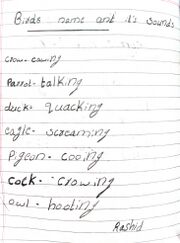 Birds name and it's sounds
Crow- cowing
Parrot- talking
duck- quacking
eagle- screaming
Pigeon- cooing
Cock- crowing
owl- hooting
Rashid